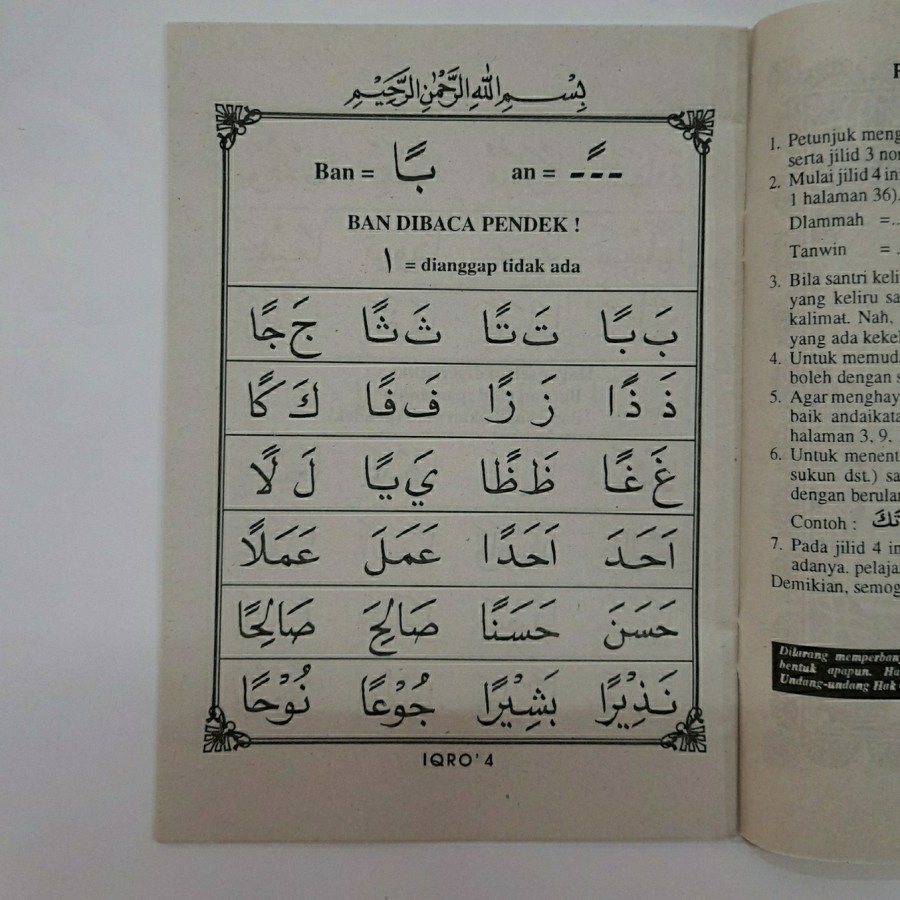 بِسْمِ اللهِ الرَّحْمٰنِ الرَّحِيْمِ
Ban = بًا an = ---ً
BAN DIBACA PENDEK !
ا = dianggap tidak ada
بَ بًا تَ تًا ثَ ثًا جَ جًا
ذَ ذًا زَ زًا فَ فًا كَ كًا
غَ غًا ظَ ظًا يَ يًا لَ لًا
اَحَدَ اَحَدًا عَمَلَ عَمَلًا
حَسَنَ حَسَنًا صَالِحَ صَالِحًا
نَذِيْرًا بَشِيْرًا جُوْعًا نُوْحًا
IQRO' 4
1. Petunjuk meng
serta jilid 3 no
2. Mulai jilid 4 in
1 halaman 36).
Dlammah =..
Tanwin = .
3. Bila santri keli
yang keliru sa
kalimat. Nah,
yang ada keke
4. Untuk memud
boleh dengan s
5. Agar menghay
baik andaikata
halaman 3, 9,
6. Untuk menent
sukun dst.) sa
dengan berula
Contoh :
7. Pada jilid 4 in
adanya. pelaja
Demikian, semog
Dilarang memperban
bentuk apapun. Ha
Undang-undang Hak